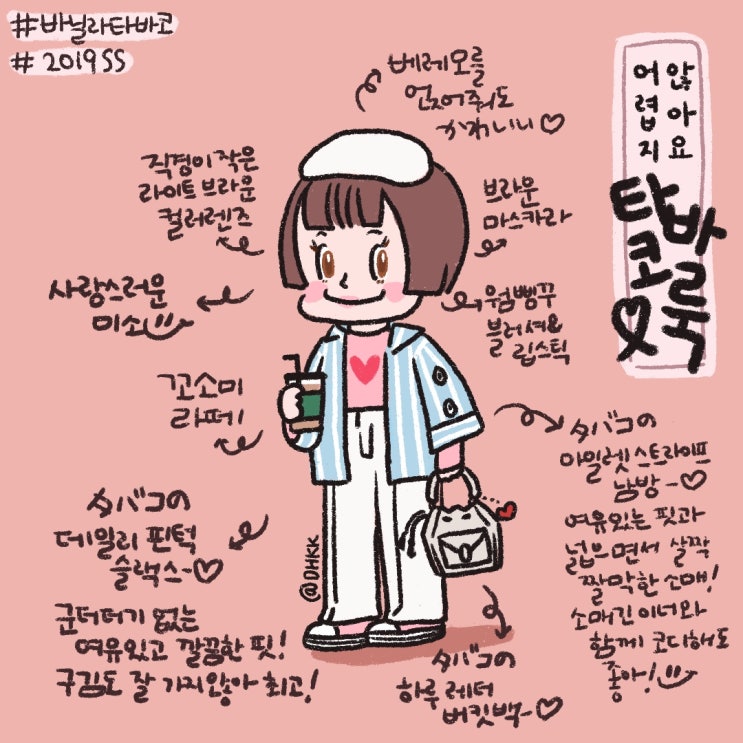 #바닐라타바코
#2019SS
베레모를
얹어줘도
かわいい♡
어렵지
않아요
타바코
룩
직경이 작은
라이트 브라운
컬러렌즈
브라운
마스카라
사랑스러운
미소
웜삥꾸
블러셔&
립스틱
꼬소미
라떼
タバコの
아일렛 스트라이프
남방~♡
여유있는 핏과
넓으면서 살짝
짤막한 소매!
소매긴 이너와
함께 코디해도
좋아!
タバコの
데일리 핀턱
슬랙스~♡
군더더기 없는
여유있고 깔끔한 핏!
구김도 잘 가지않아 최고!
タバコの
하루 레더
버킷백~♡
@DHKK